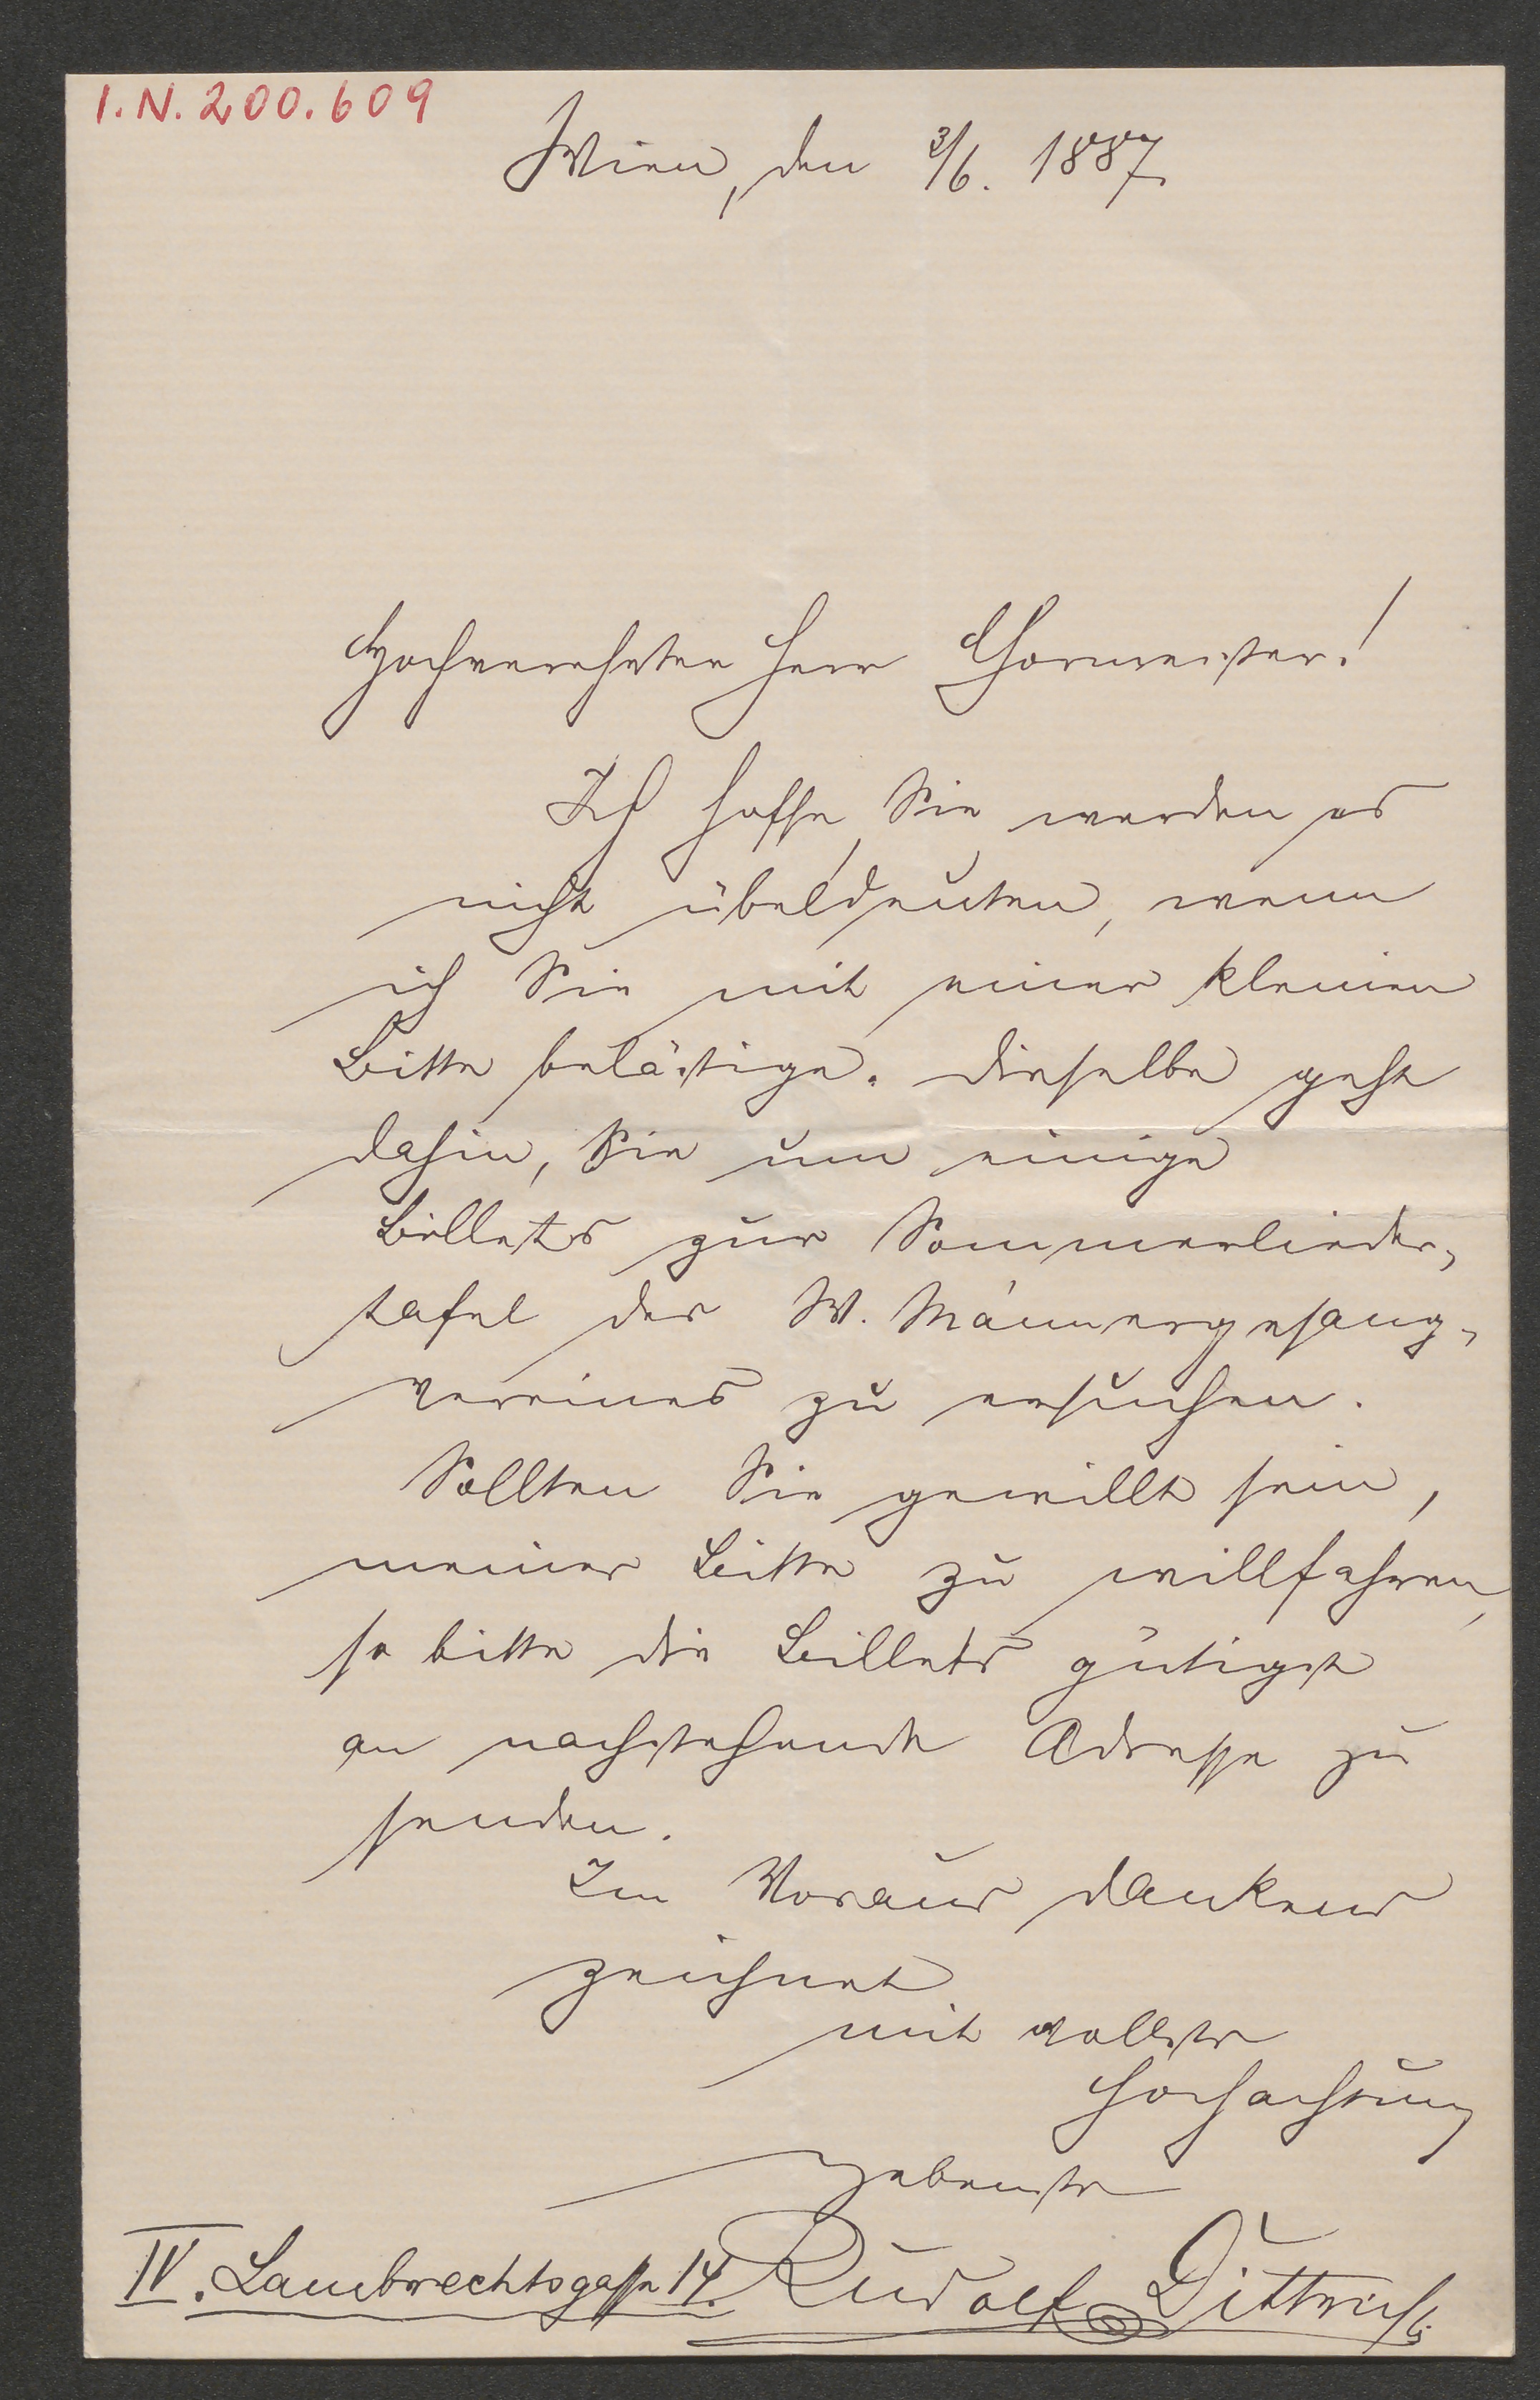 I.N. 200.609
Wien, den 3/6. 1887.
Hochverehrter Herr Chormeister!
Ich hoffe, Sie werden es
nicht übeldeuten, wenn
ich Sie mit einer kleinen
Bitte belästige. Dieselbe geht
dahin, Sie um einige
Billets zur Sommerlieder-
tafel des W. Männergesang-
vereines zu ersuchen.
Sollten Sie gewillt sein,
meiner Bitte zu willfahren,
so bitte die Billets gütigst
an nachstehende Adresse zu
senden.
Im Voraus dankend
zeichnet
mit vollster
Hochachtung
ergebenster
IV. Lambrechtsgasse 14. Rudolf Dittrich